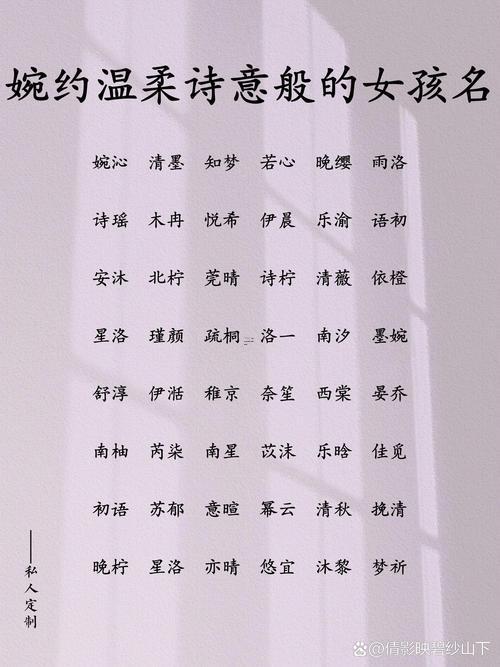 婉约温柔诗意般的女孩名
婉沁 清墨 知梦 若心 晚缨 雨洛
诗瑶 木冉 悦希 伊晨 乐渝 语初
安沐 北柠 莞晴 诗柠 清薇 依橙
星洛 瑾颜 疏桐 洛一 南汐 墨婉
舒淳 伊湉 稚京 奈笙 西棠 晏乔
南柚 芮柒 南星 苡沫 乐晗 佳觅
初语 苏郁 意暄 幂云 清秋 挽清
晚柠 星洛 亦晴 悠宜 沐黎 梦祈
——私人定制
@倩影映碧纱山下